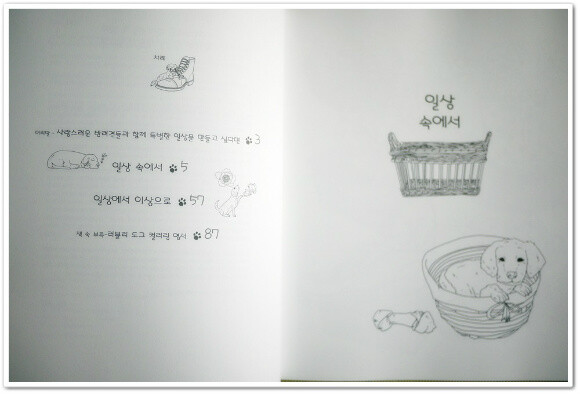 차례
사랑스러운 반려견들과 함께 특별한 일상을 만들고 싶다면 3
일상 속에서 5
일상에서 이상으로 57
책 속 부록-러블리 도그 컬러링 엽서 87
일상
속에서